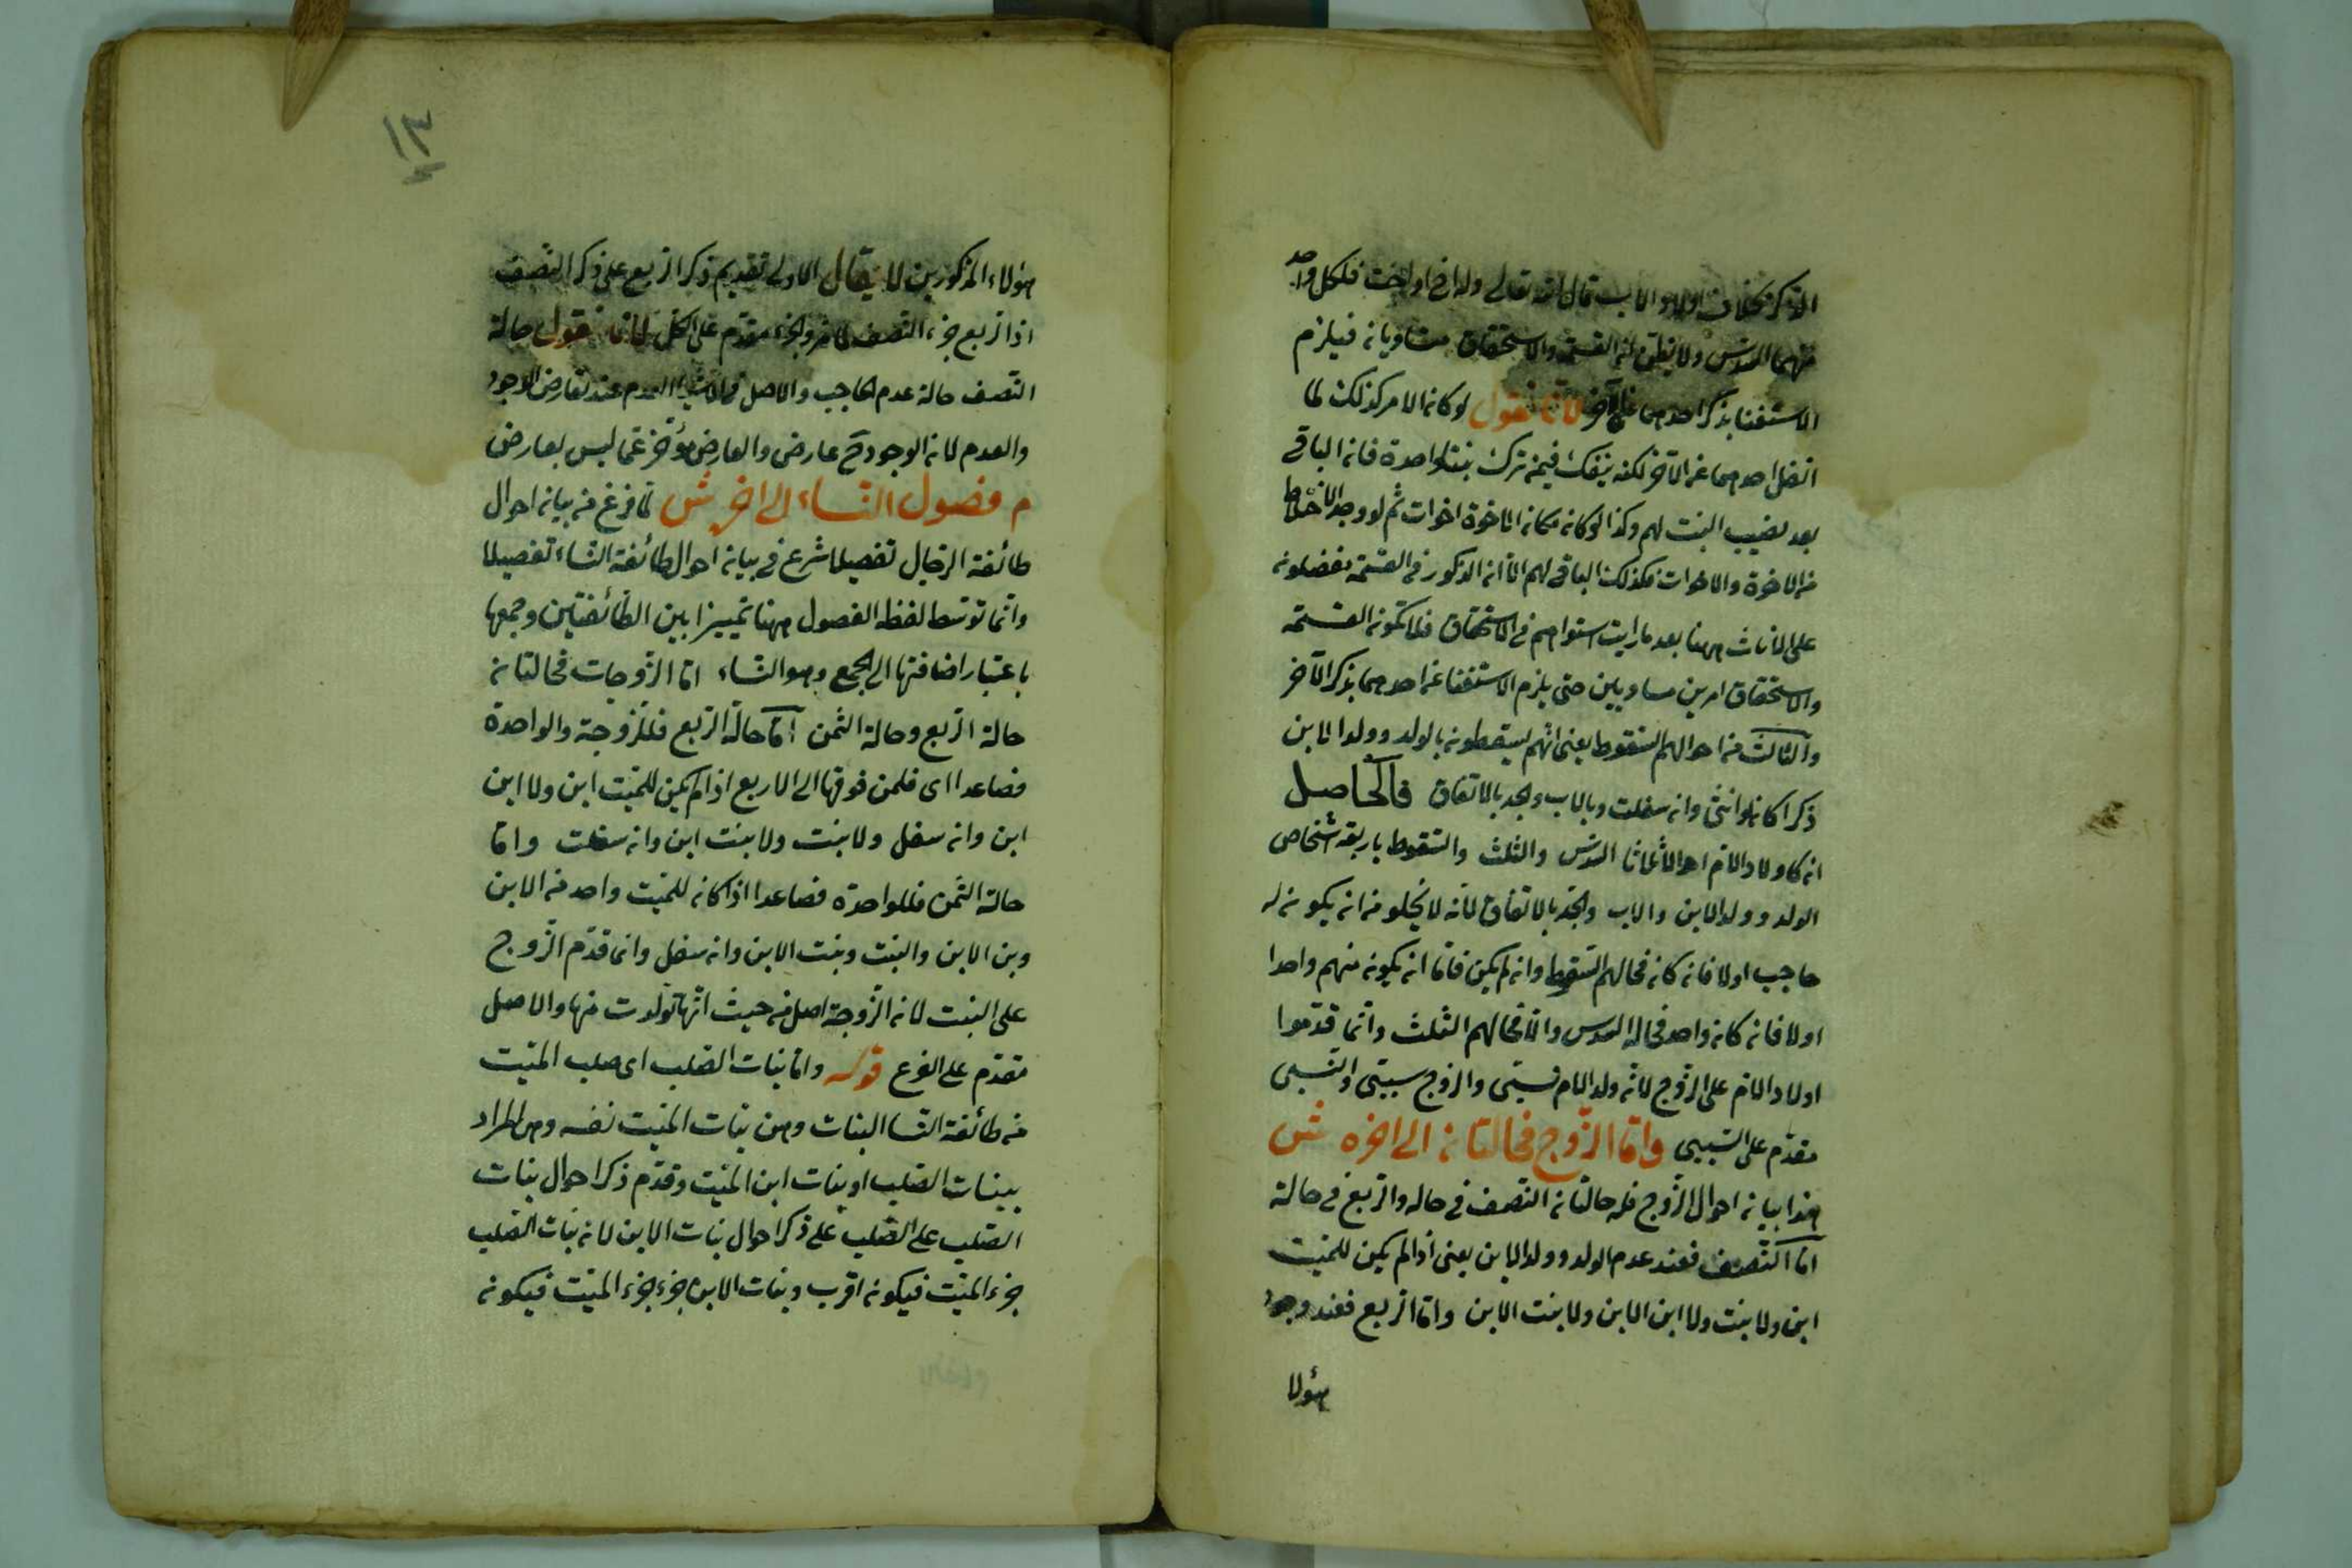 الذكر بخلاف اولاد الاب قال الله تعالى وله اخ او اخت فلكل واحد
منهما السدس ولا يظن ان القسمة والاستحقاق متساويان فيلزم
الاستغنا بذكر احدهما عن الآخر لانا نقول لو كان الامر كذلك لما
انفك احدهما عن الآخر لكنه ينفك فيمن ترك بنتا واحدة فان الباقى
بعد نصيب البنت لهم وكذا لو كان مكان الاخوة اخوات ثم لو وجد الاختلاط
من الاخوة والاخوات فكذلك الباقى لهم الا ان الذكور فى القسمة يفضلون
على الاناث ههنا بعد ما رايت استواهم فى الاستحقاق فلا تكون القسمة
والاستحقاق امرين مساويين حتى يلزم الاستغنا عن احدهما بذكر الآخر
والثالث من احوالهم السقوط يعنى انهم يسقطون بالولد وولد الابن
ذكرا كان او انثى وان سفلت وبالاب والجد بالاتفاق فالحاصل
ان لاولاد الام احوالا ثلاثا السدس والثلث والسقوط باربعة اشخاص
الولد وولد الابن والاب والجد بالاتفاق لانه لا يخلو من ان يكون له
حاجب اولا فان كان فحالهم السقوط وان لم يكن فاما ان يكون منهم واحدا
اولا فان كان واحد فحاله السدس والا فحالهم الثلث وانما قدموا
اولاد الام على الزوج لانه ولد الام نسبى والزوج سببى والنسبى
مقدم على السببى واما الزوج فحالتان الى اخره ش
هذا بيان احوال الزوج فله حالتان النصف فى حاله والربع فى حالة
اما النصف فعند عدم الولد وولد الابن يعنى اذا لم يكن للميت
ابن ولا بنت ولا ابن الابن ولا بنت الابن واما الربع فعند وجود
هؤلا
١٣
هؤلاء المذكورين لا يقال الاولى تقديم ذكر الربع على ذكر النصف
اذ الربع جزء النصف والجزء مقدم على الكل لانا نقول حالة
النصف حالة عدم الحاجب والاصل فى الاشيا العدم عند تعارض الوجود
والعدم لان الوجود ح عارض والعارض مؤخر عما ليس بعارض
م فصول النساء الى اخره ش لما فرغ من بيان احوال
طائفة الرجال تفصيلا شرع فى بيان احوال طائفة النساء تفصيلا
وانما توسط لفظ الفصول ههنا تمييزا بين الطائفتين وجمعها
باعتبار اضافتها الى الجمع وهو النساء اما الزوجات فحالتان
حالة الربع وحالة الثمن اما حالة الربع فللزوجة والواحدة
فصاعدا اى فلمن فوقها الى الاربع اذا لم يكن للميت ابن ولا ابن
ابن وان سفل ولا بنت ولا بنت ابن وان سفلت واما
حالة الثمن فللواحدة فصاعدا اذا كان للميت واحد من الابن
وبن الابن والبنت وبنت الابن وان سفل وانما قدم الزوج
على البنت لان الزوجة اصل من حيث انها تولدت منها والاصل
مقدم على الفرع قوله واما بنات الصلب اى صلب الميت
من طائفة النسا البنات وهن بنات الميت نفسه وهن المراد
ببنات الصلب او بنات ابن الميت وقدم ذكر احوال بنات
الصلب على الصلب على ذكر احوال بنات الابن لان بنات الصلب
جزء الميت فيكون اقرب وبنات الابن جزء جزء الميت فيكون